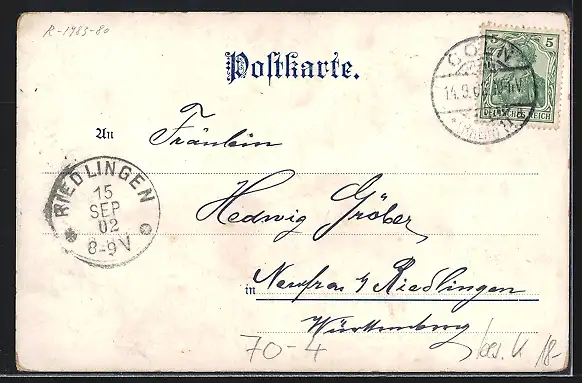 R-1983-80
Postkarte.
5
CÖLN
14.9.02
DEUTSCHES REICH
(RHEIN) 1
An
Fräulein
RIEDLINGEN
15
SEP
02
8-9V
Hedwig Gröber
in Neufra b/ Riedlingen
Württemberg
70-4
bes. K 18-